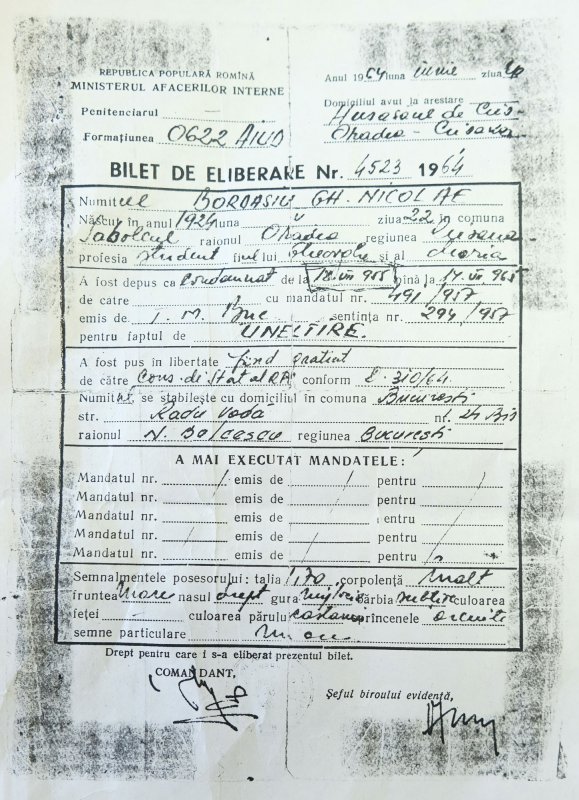 REPUBLICA POPULARĂ ROMÎNĂ
MINISTERUL AFACERILOR INTERNE
Penitenciarul
Formațiunea 0622 AIUD
Anul 1964 luna iunie ziua
Domiciliul avut la arestare
Husasăul de Criș
Oradea - Crișana
BILET DE ELIBERARE Nr. 4523 1964
Numitul BORDAȘIU GH. NICOLAE
Născut în anul 1924 luna V ziua 22 în comuna
raionul Oradea regiunea Crișana
profesia student fiul Gheorghe și al Maria
A fost depus ca Condamnat de la 18 VII 955 pînă la 17 VII 965
de către cu mandatul nr. 491/957
emis de T. M. Buc sentința nr. 294/957
pentru faptul de UNELTIRE.
A fost pus în libertate fiind grațiat
de către Cons. de Stat al RPR conform D. 310/64.
Numitul se stabilește cu domiciliul în comuna București
str. Radu Vodă nr. 24 Bis
raionul N. Bălcescu regiunea București
A MAI EXECUTAT MANDATELE:
Mandatul nr. emis de pentru
Mandatul nr. emis de pentru
Mandatul nr. emis de pentru
Mandatul nr. emis de pentru
Mandatul nr. emis de pentru
Semnalmentele posesorului: talia 1,70 corpolența înalt
fruntea mare nasul drept gura mijlocie bărbia culoarea
feței culoarea părului castaniu sprîncenele
semne particulare nu are
Drept pentru care i s-a eliberat prezentul bilet.
COMANDANT,
Șeful biroului evidență,